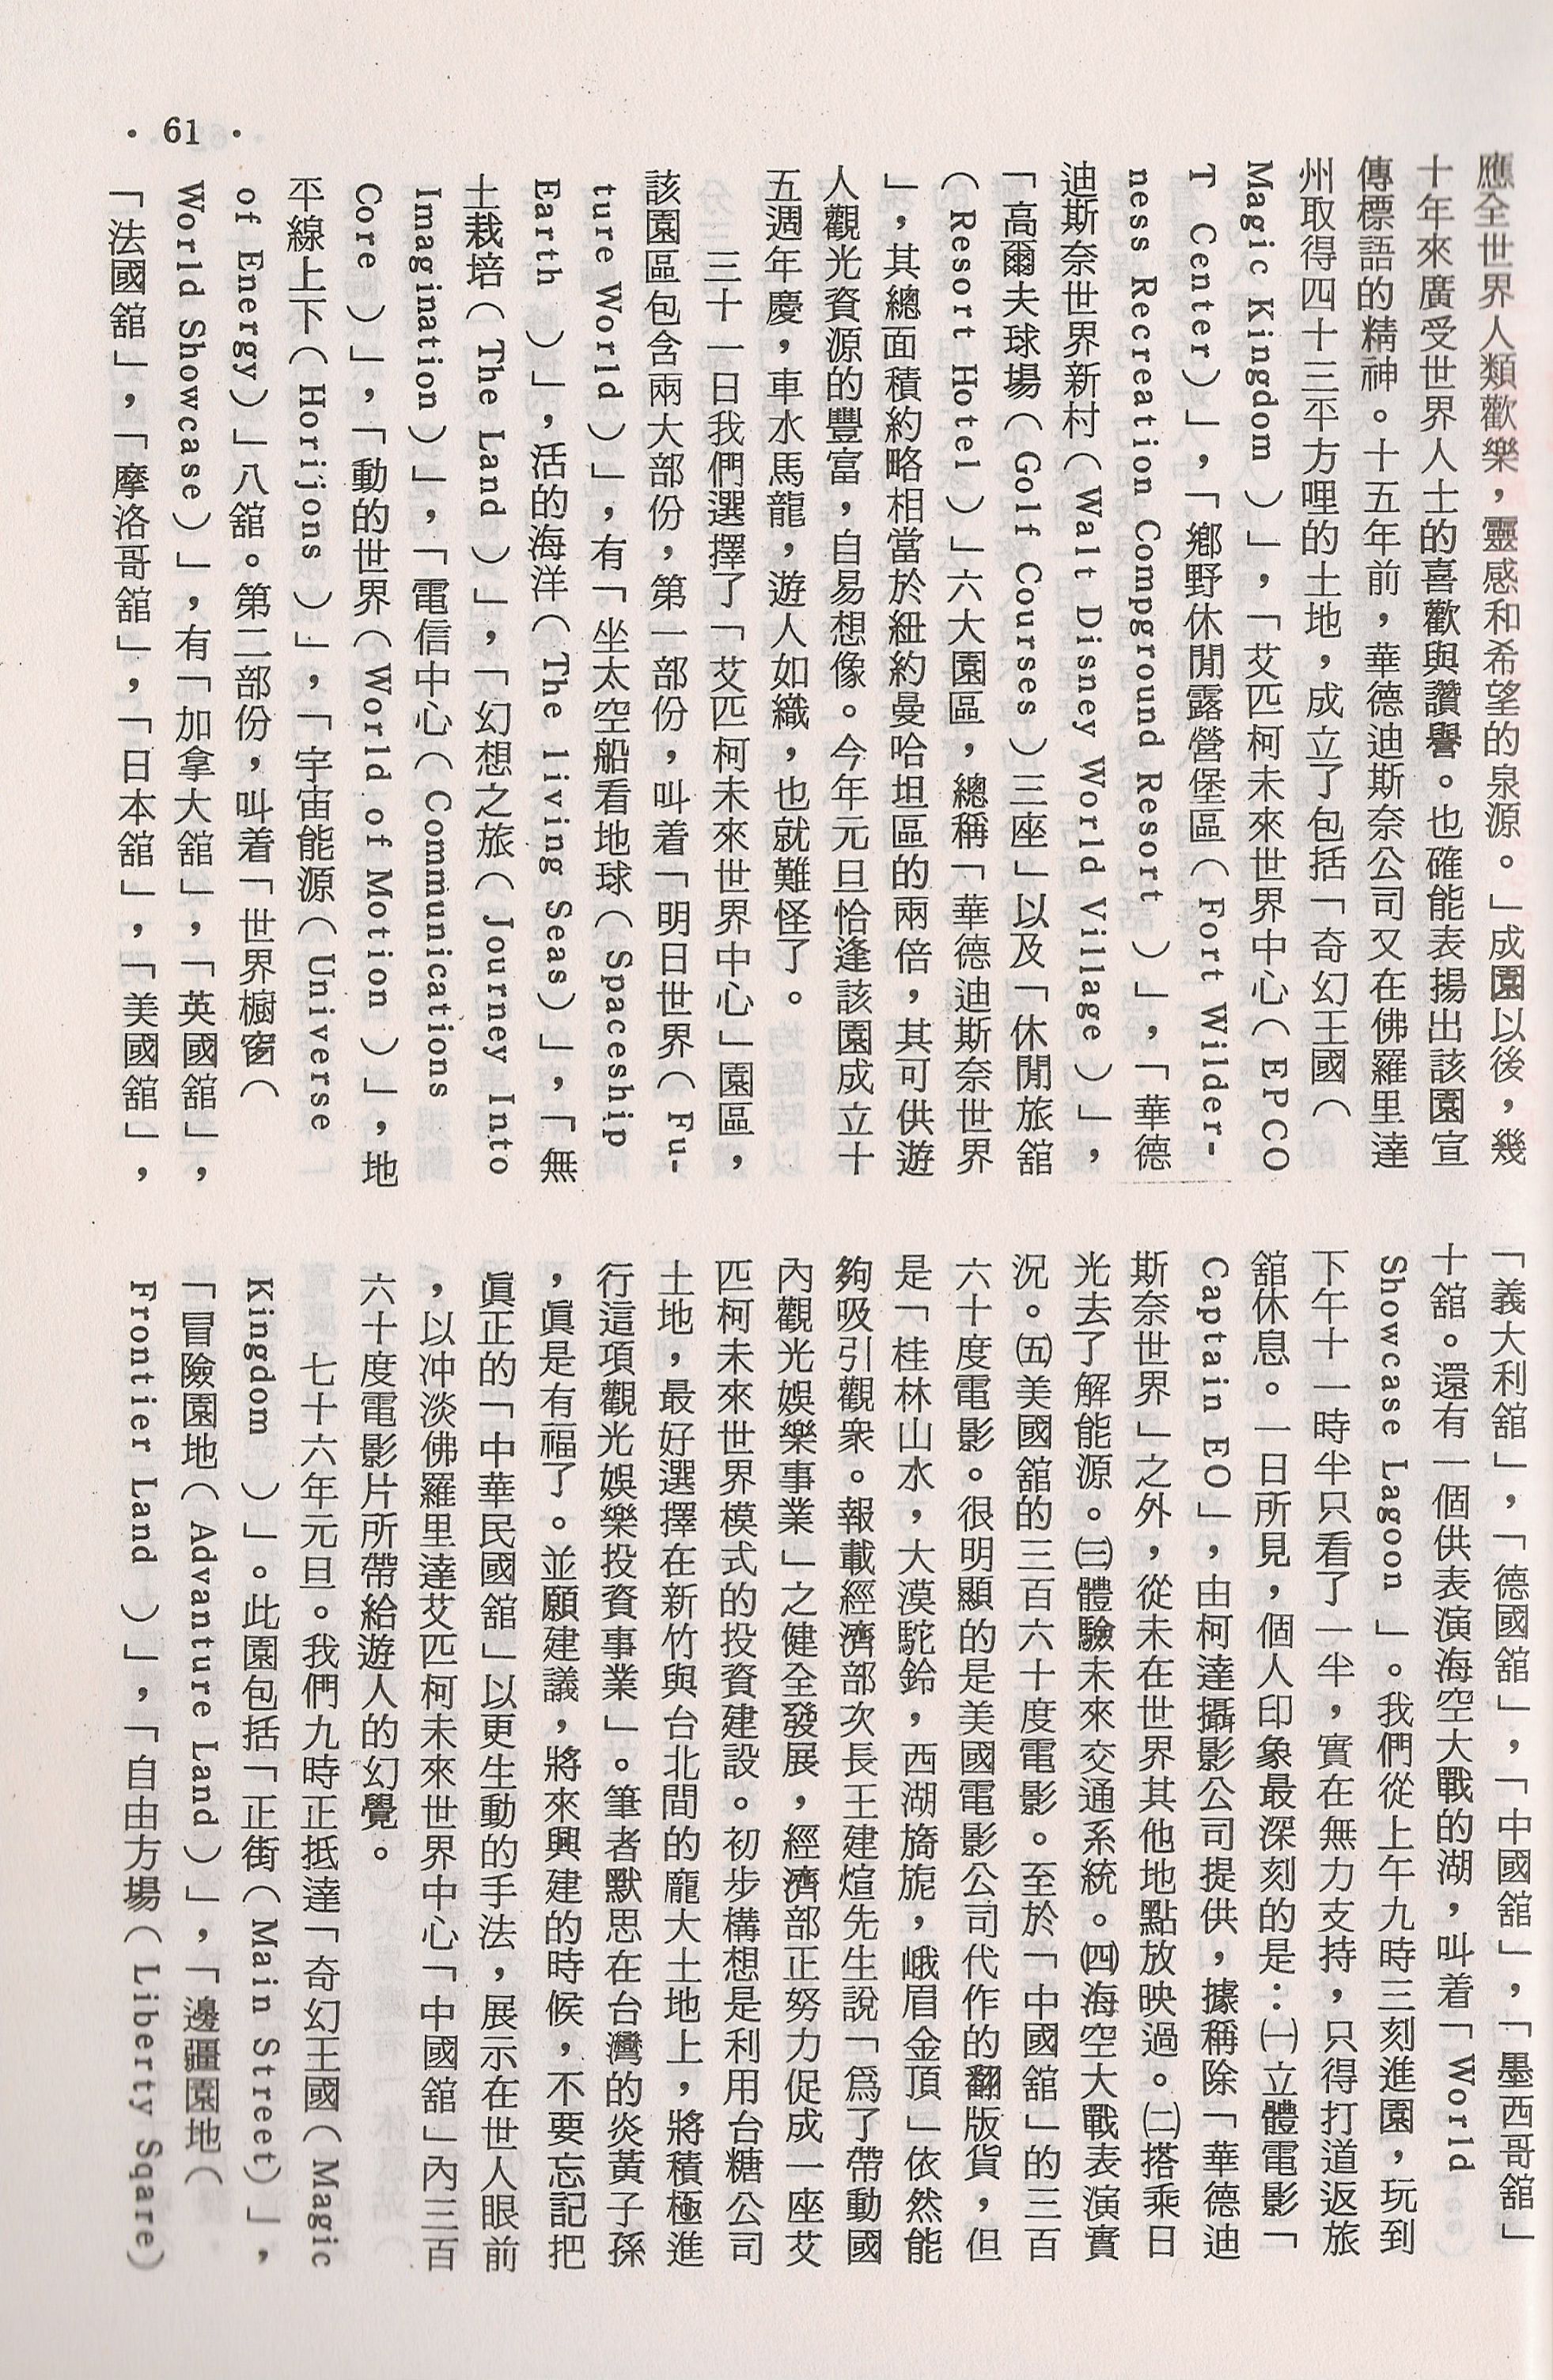 應全世界人類歡樂，靈感和希望的泉源。」成園以後，幾
十年來廣受世界人士的喜歡與讚譽。也確能表揚出該園宣
傳標語的精神。十五年前，華德迪斯奈公司又在佛羅里達
州取得四十三平方哩的土地，成立了包括「奇幻王國（
Magic Kingdom ）」，「艾匹柯未來世界中心（EPCO
T Center）」，「鄉野休閒露營堡區（Fort Wilder-
ness Recreation Compground Resort ）」，「華德
迪斯奈世界新村（Walt Disney World Village ）」，
「高爾夫球場（Golf Courses ）三座」以及「休閒旅舘
（Resort Hotel ）」六大園區，總稱「華德迪斯奈世界
」，其總面積約略相當於紐約曼哈坦區的兩倍，其可供遊
人觀光資源的豐富，自易想像。今年元旦恰逢該園成立十
五週年慶，車水馬龍，遊人如織，也就難怪了。
三十一日我們選擇了「艾匹柯未來世界中心」園區，
該園區包含兩大部份，第一部份，叫着「明日世界（Fu-
ture World ）」，有「坐太空船看地球（Spaceship
Earth ）」，活的海洋（The living Seas）」，「無
土栽培（The Land ）」，「幻想之旅（Journey Into
Imagination ）」，「電信中心（Communications
Core ）」，「動的世界（World of Motion ）」，地
平線上下（Horijons ）」，「宇宙能源（Universe
of Energy）」八舘。第二部份，叫着「世界橱窗（
World Showcase）」，有「加拿大舘」，「英國舘」，
「法國舘」，「摩洛哥舘」，「日本舘」，「美國舘」，
「義大利舘」，「德國舘」，「中國舘」，「墨西哥舘」
十舘。還有一個供表演海空大戰的湖，叫着「World
Showcase Lagoon 」。我們從上午九時三刻進園，玩到
下午十一時半只看了一半，實在無力支持，只得打道返旅
舘休息。一日所見，個人印象最深刻的是：㈠立體電影「
Captain EO」，由柯達攝影公司提供，據稱除「華德迪
斯奈世界」之外，從未在世界其他地點放映過。㈡搭乘日
光去了解能源。㈢體驗未來交通系統。㈣海空大戰表演實
況。㈤美國舘的三百六十度電影。至於「中國舘」的三百
六十度電影。很明顯的是美國電影公司代作的翻版貨，但
是「桂林山水，大漠駝鈴，西湖旖旎，峨眉金頂」依然能
夠吸引觀衆。報載經濟部次長王建煊先生說「爲了帶動國
內觀光娛樂事業」之健全發展，經濟部正努力促成一座艾
匹柯未來世界模式的投資建設。初步構想是利用台糖公司
土地，最好選擇在新竹與台北間的龐大土地上，將積極進
行這項觀光娛樂投資事業」。筆者默思在台灣的炎黃子孫
，眞是有福了。並願建議，將來興建的時候，不要忘記把
眞正的「中華民國舘」以更生動的手法，展示在世人眼前
，以冲淡佛羅里達艾匹柯未來世界中心「中國舘」內三百
六十度電影片所帶給遊人的幻覺。
七十六年元旦。我們九時正抵達「奇幻王國（Magic
Kingdom ）」。此園包括「正街（Main Street）」，
「冒險園地（Advanture Land）」，「邊疆園地（
Frontier Land ）」，「自由方場（Liberty Sqare）
• 61 •